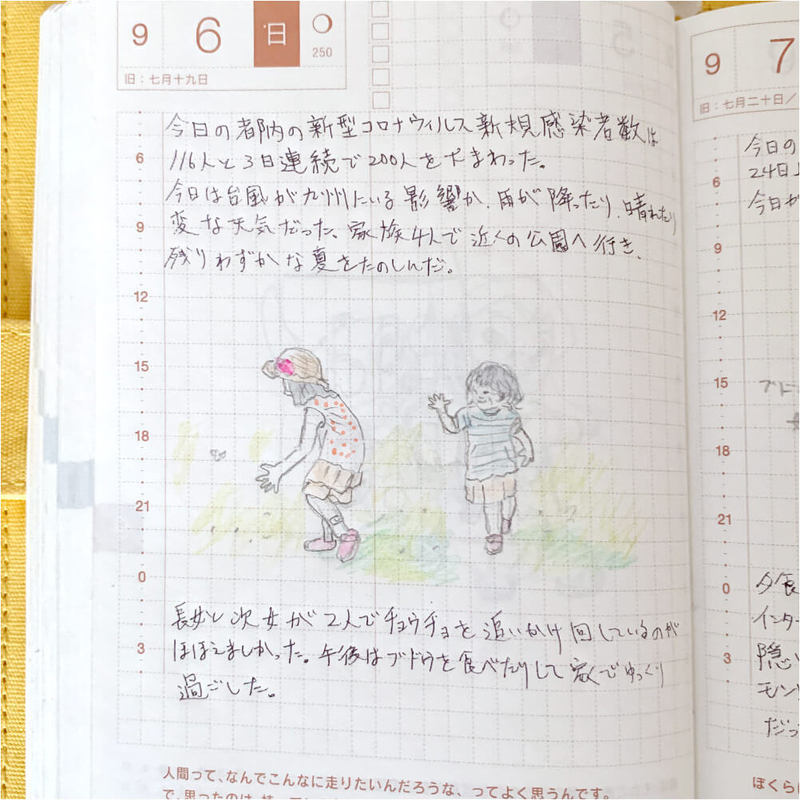 9 6 日 250
旧：七月十九日
今日の都内の新型コロナウィルス新規感染者数は
116人と3日連続で200人を下まわった。
今日は台風が九州にいる影響か、雨が降ったり、晴れたり
変な天気だった。家族4人で近くの公園へ行き、
残りわずかな夏をたのしんだ。
6
9
12
15
18
21
0
3
長女と次女が2人でチョウチョを追いかけ回しているのが
ほほえましかった。午後はブドウを食べたりして家でゆっくり
過ごした。
人間って、なんでこんなに走りたいんだろうな、ってよく思うんです。
で、思ったのは、
9 7
旧：七月二十日／
今日の
24日
今日が
6
9
15
18
21
0
3
夕食
インター
隠い
モン
だっ
ぼくら